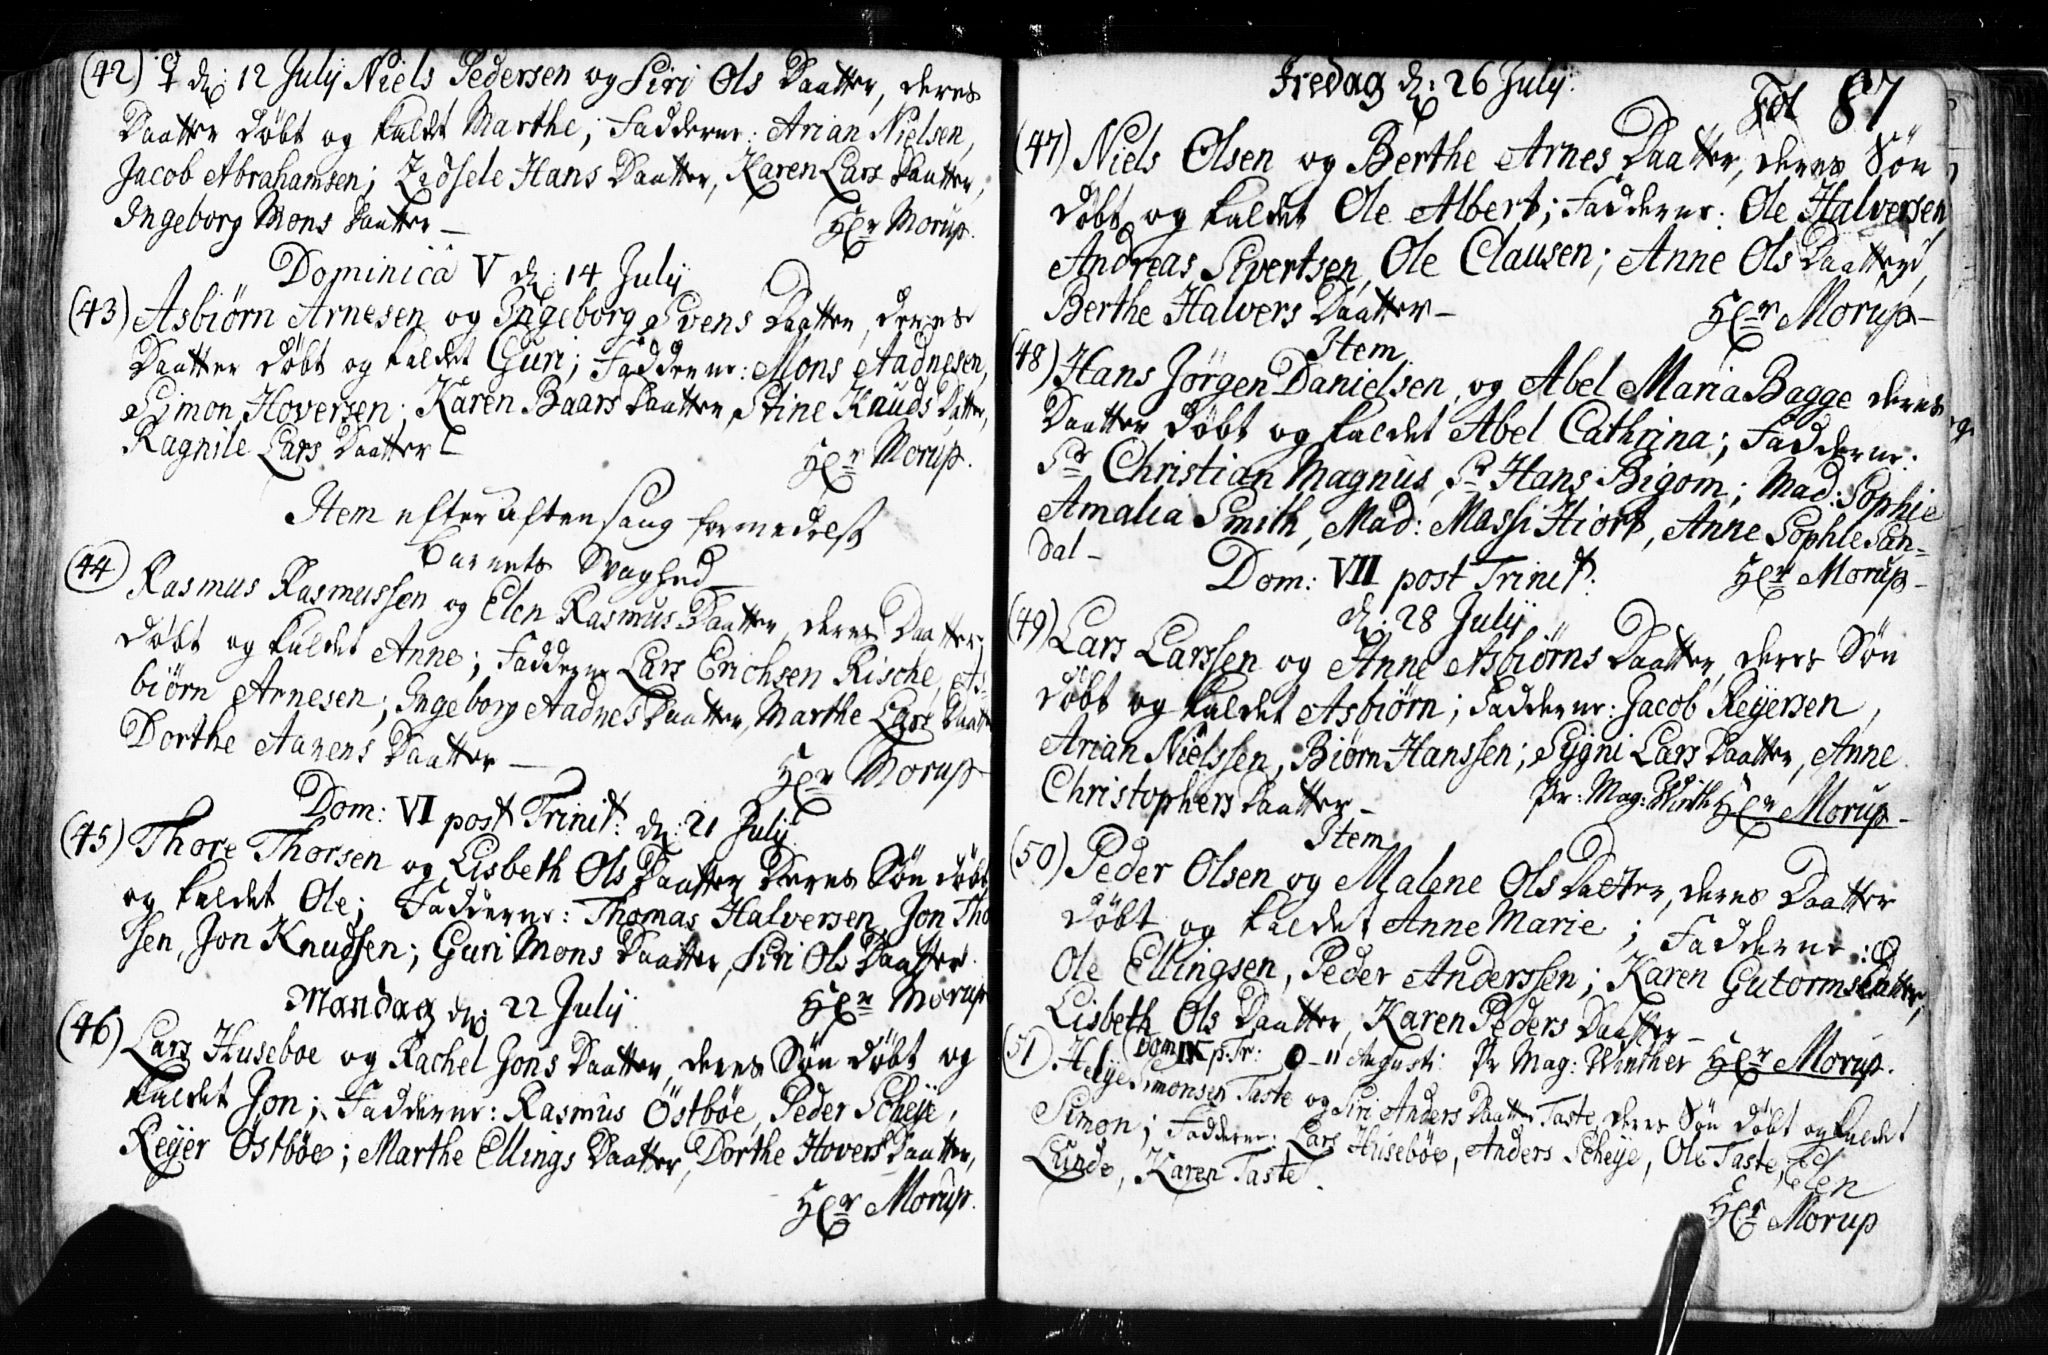 (42) ♀ d: 12 Julij Niels Pedersen og Siri Ols Daatter, deres
Daatter døbt og kaldet Marthe; Fadderne: Arian Nielsen,
Jacob Abrahamsen; Zidsele Hans Daatter, Karen Lars Daatter,
Ingeborg Mons Daatter —
Hr Morup.
Dominica V d: 14 Julij
(43) Asbiørn Arnesen og Ingeborg Svens Daatter, deres
Daatter døbt og kaldet Guri; Fadderne: Mons Aadnesen,
Simon Hoversen; Karen Baars Daatter, Stine Knuds Datter,
Ragnile Lars Daatter
Hr Morup.
Item efter Aftensang formedelst
Barnets Svaghed —
(44) Rasmus Rasmussen og Elen Rasmus Daatter, deres Daatter
døbt og kaldet Anne; Fadderne Lars Erichsen Rische, As-
biørn Arnesen; Ingeborg Aadnes Daatter, Marthe Lars Daatter
Dorthe Aarens Daatter —
Hr Morup
Dom: VI post Trinit: d: 21 Julij
(45) Thore Thorsen og Lisbeth Ols Daatter Deres Søn døbt
og kaldet Ole; Fadderne: Thomas Halversen, Jon Tho
sen, Jon Knudsen; Guri Mons Daatter, Siri Ols Daatter.
Hr Morup
Mandag d: 22 Julij
(46) Lars Huseboe og Rachel Jons Daatter, deres Søn døbt og
kaldet Jon; Fadderne: Rasmus Østbøe, Peder Scheje,
Rejer Østbøe; Marthe Ellings Daatter, Dorthe Hovers Daatter,
Hr Morup.
Fredag d: 26 Julij.
Fol 87
(47) Niels Olsen og Berthe Arnes Daatter, deres Søn
døbt og kaldet Ole Albert; Fadderne: Ole Halversen
Andreas Sivertsen, Ole Clausen; Anne Ols Daatter,
Berthe Halvers Daatter —
Hr Morup —
Item
(48) Hans Jørgen Danielsen, og Abel Maria Bagge deres
Daatter døbt og kaldet Abel Cathrina; Fadderne:
Sr Christian Magnus, Sr Hans Bigom; Mad: Sophie
Amalia Smith, Mad: Massi Hiort, Anne Sophie San-
dal —
Hr Morup —
Dom: VII post Trinit:
d: 28 Julij
(49) Lars Larssen og Anne Asbiørns Daatter, deres Søn
døbt og kaldet Asbiørn; Fadderne: Jacob Rejersen,
Arian Nielssen, Biørn Hanssen; Sygni Lars Daatter, Anne
Christophers Daatter —
Pr: Mag: Winth Hr Morup —
Item
(50) Peder Olsen og Malene Ols Datter, deres Daatter
døbt og kaldet Anne Marie; Fadderne:
Ole Ellingsen, Peder Anderssen; Karen Gutorms Datter,
Lisbeth Ols Daatter, Karen Peders Daatter —
Dom IX p. Tr: 11 Augusti: Pr Mag: Winther Hr Morup.
51) Helje Simonsen Taste og Siri Anders Daatter Taste, deres Søn døbt og kaldet
Simon; Fadderne: Lars Husebøe, Anders Scheje, Ole Taste, Elen
Lunde, Karen Taste.
Hr Morup